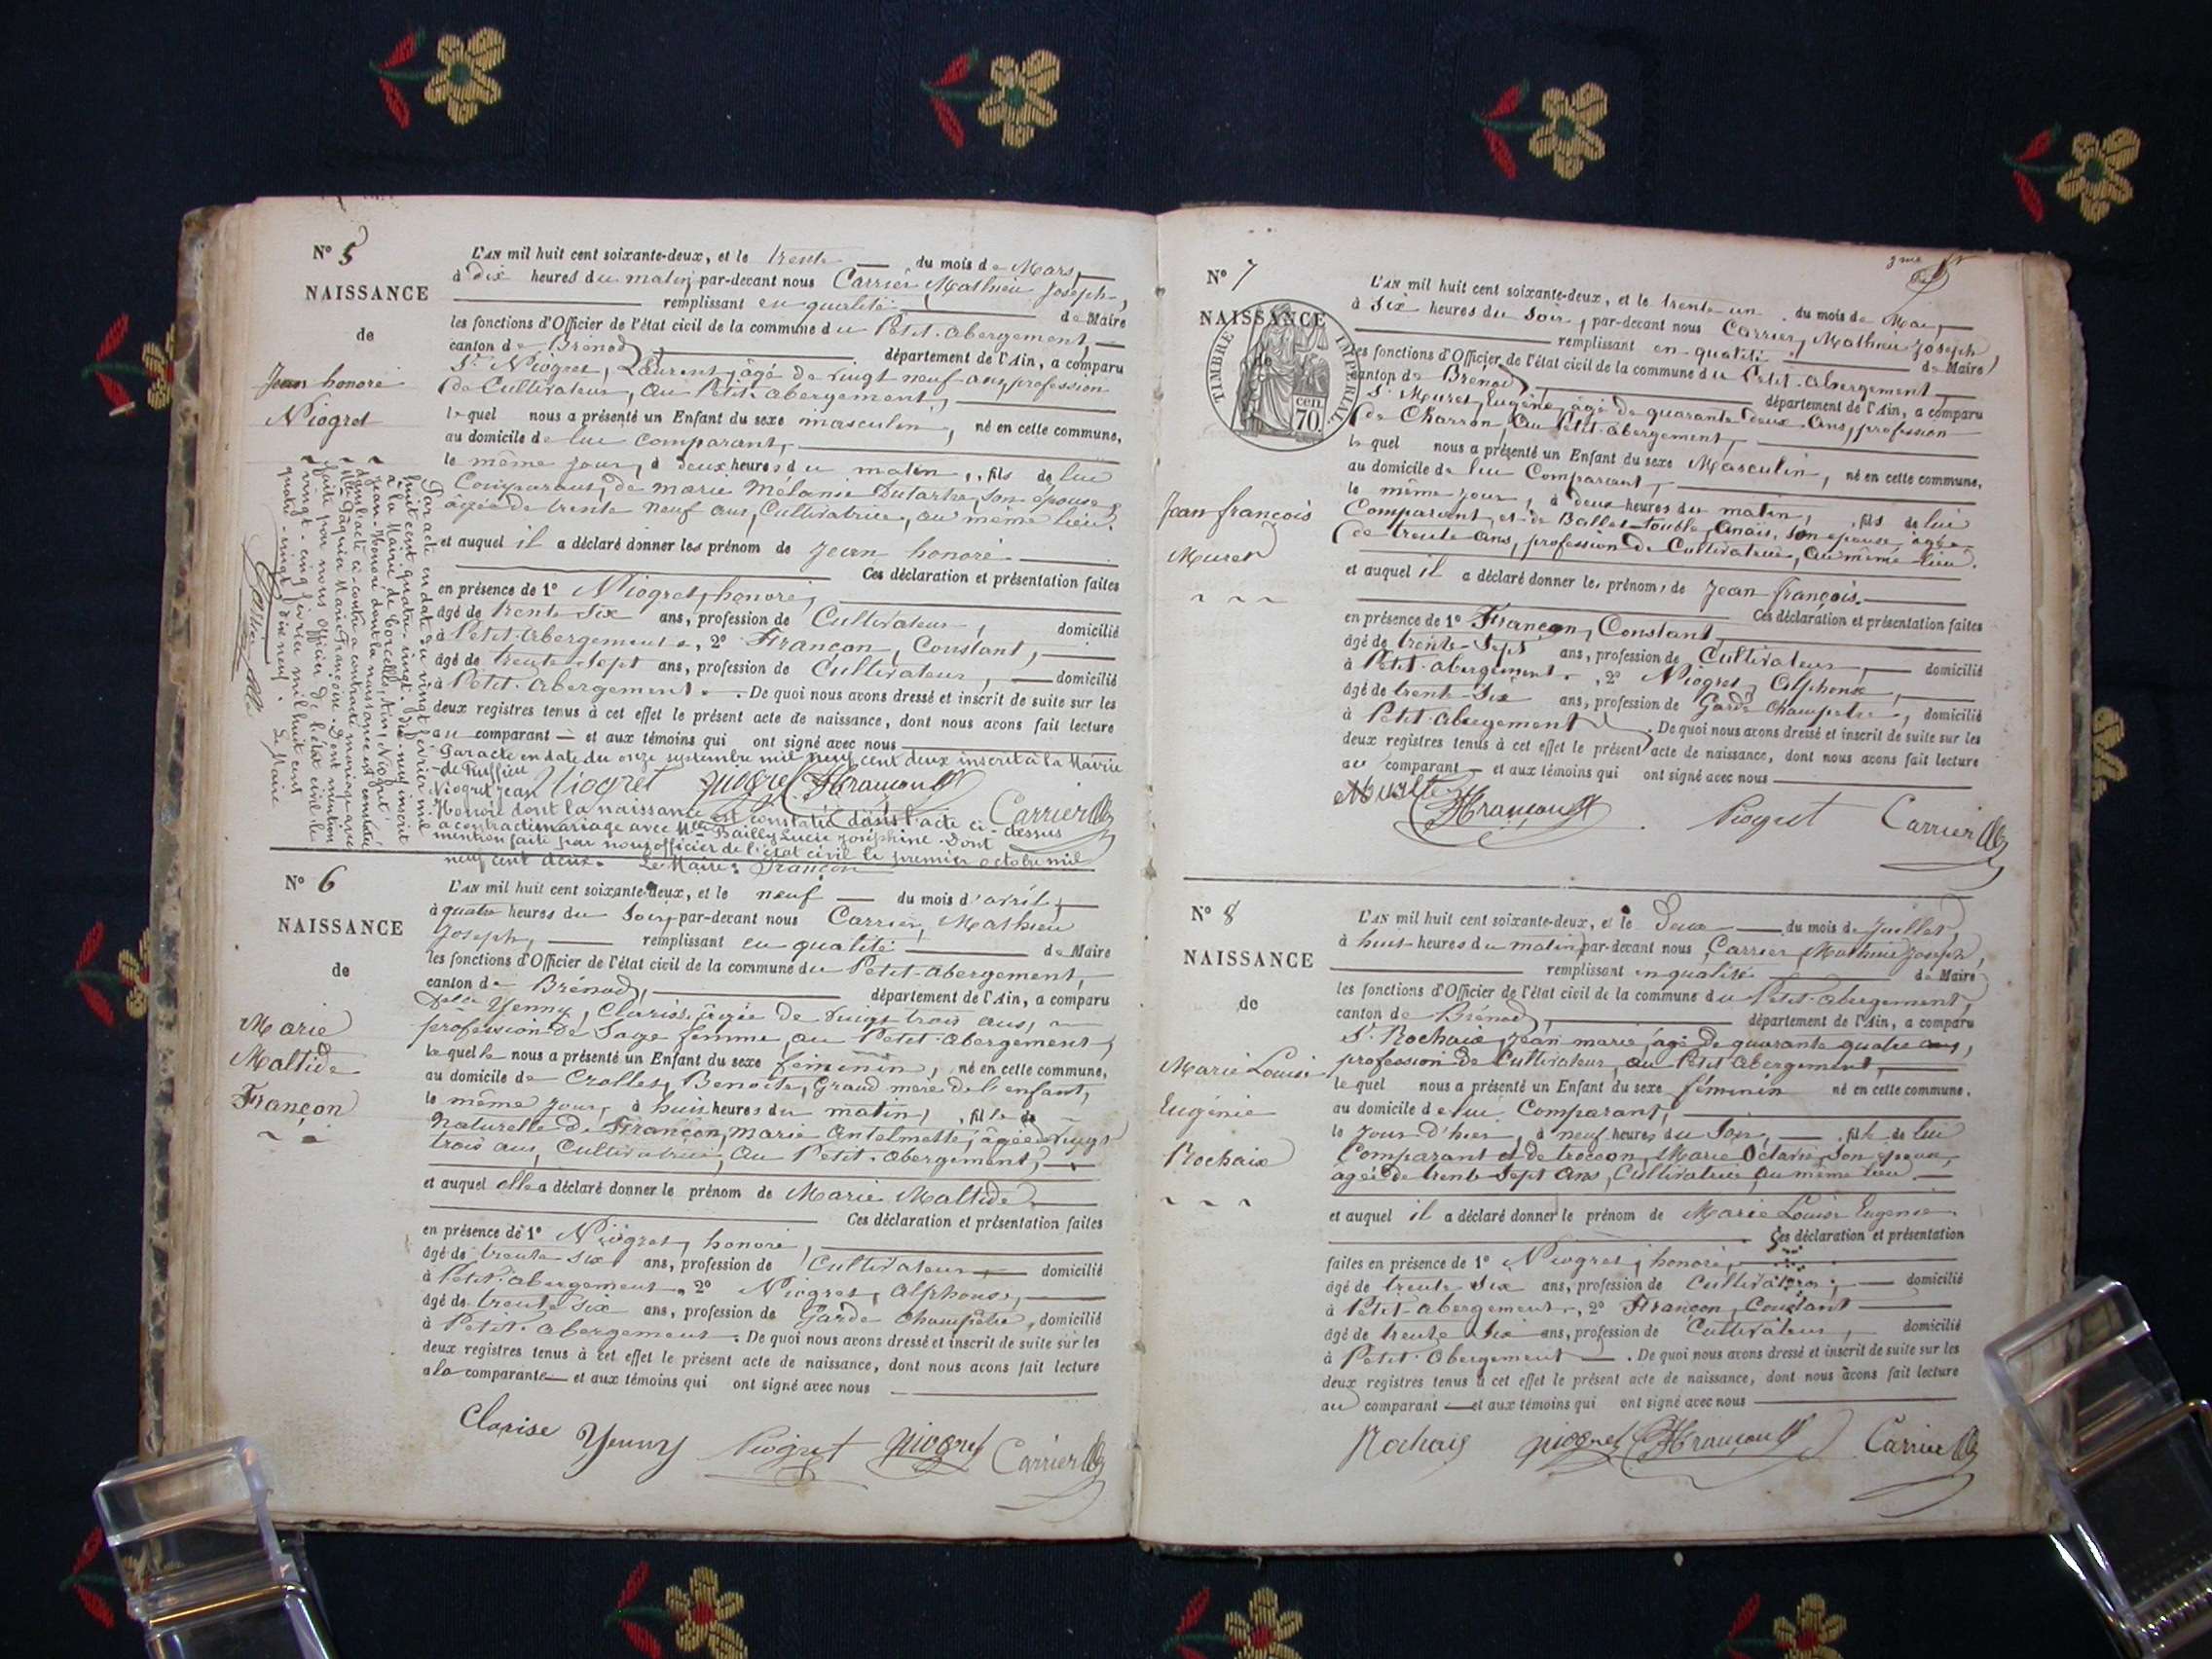 N° 5
NAISSANCE
de
Jean honoré
Niogret
L'AN mil huit cent soixante-deux, et le trente du mois de Mars,
à dix heures du matin, par-devant nous Carrier Mathieu Joseph,
remplissant en qualité de Maire
les fonctions d'Officier de l'état civil de la commune du Petit-abergement,
canton de Brénod, département de l'Ain, a comparu
Sr Niogret, Laurent, âgé de vingt neuf ans, profession
de Cultivateur, au Petit-abergement,
lequel nous a présenté un Enfant du sexe masculin, né en cette commune,
au domicile de lui comparant,
le même jour, à deux heures du matin, fils de lui
Comparant, de marie Mélanie Dutartre, son épouse,
âgée de trente neuf ans, Cultivatrice, au même lieu,
et auquel il a déclaré donner les prénom de Jean honoré
Ces déclaration et présentation faites
en présence de 1° Niogret, honoré,
âgé de trente six ans, profession de Cultivateur, domicilié
à Petit-abergement, 2° Françon, Constant,
âgé de trente-sept ans, profession de Cultivateur, domicilié
à Petit-abergement. De quoi nous avons dressé et inscrit de suite sur les
deux registres tenus à cet effet le présent acte de naissance, dont nous avons fait lecture
au comparant et aux témoins qui ont signé avec nous
Par acte en date du onze septembre mil neuf cent deux inscrit à la Mairie
de Ruffieu
Niogret Jean
Niogret niogret Françon Carrier
Honoré dont la naissance est constatée dans l'acte ci-dessus
a contracté mariage avec Mlle Bailly Lucie Joséphine. Dont
mention faite par nous officier de l'état civil le premier octobre mil
neuf cent deux. Le Maire: Françon
Par acte en date du vingt février mil
huit cent quatre-vingt-dix-neuf inscrit
à la Mairie de Corcelles, Ain, Niogret
Jean-Honoré dont la naissance est constatée
dans l'acte ci-contre a contracté mariage avec
Mlle Marie Françoise. Dont mention
faite par nous officier de l'état civil le
vingt-cinq février mil huit cent
quatre-vingt-dix neuf. Le Maire
N° 6
NAISSANCE
de
Marie
Maltide
Françon
L'AN mil huit cent soixante-deux, et le neuf du mois d'avril,
à quatre heures du soir, par-devant nous Carrier, Mathieu
Joseph, remplissant en qualité de Maire
les fonctions d'Officier de l'état civil de la commune du Petit-abergement,
canton de Brénod, département de l'Ain, a comparu
Delle Yenny, Clarisse, âgée de vingt trois ans,
profession de Sage femme, au Petit-abergement,
lequelle nous a présenté un Enfant du sexe féminin, né en cette commune,
au domicile de Crolles, Benoite, Grand mère de l'enfant,
le même jour, à huit heures du matin, fille de
Naturelle de Françon, Marie Antelmette, âgée de vingt
trois ans, Cultivatrice, au Petit-abergement,
et auquel elle a déclaré donner le prénom de Marie Maltide
Ces déclaration et présentation faites
en présence de 1° Niogret, honoré,
âgé de trente six ans, profession de Cultivateur, domicilié
à Petit-abergement, 2° Niogret, alphonse,
âgé de trente six ans, profession de Garde Champêtre, domicilié
à Petit-abergement. De quoi nous avons dressé et inscrit de suite sur les
deux registres tenus à cet effet le présent acte de naissance, dont nous avons fait lecture
a la comparante et aux témoins qui ont signé avec nous
Clarise Yenny Niogret niogret Carrier
3me
N° 7
NAISSANCE
de
TIMBRE IMPERIAL
70 cen.
Jean françois
Muret
L'AN mil huit cent soixante-deux, et le trente un du mois de Mai,
à six heures du soir, par-devant nous Carrier, Mathieu Joseph,
remplissant en qualité de Maire
les fonctions d'Officier de l'état civil de la commune du Petit-abergement
canton de Brénod, département de l'Ain, a comparu
Sr Muret, Eugène, âgé de quarante deux ans, profession
de Charron, au Petit-abergement,
lequel nous a présenté un Enfant du sexe Masculin, né en cette commune,
au domicile de lui Comparant,
le même jour, à deux heures du matin, fils de lui
Comparant, et de Ballet-touble, Anaïs, son épouse, âgée
de trente ans, profession de Cultivateur, au même lieu.
et auquel il a déclaré donner les prénoms de Jean-François.
Ces déclaration et présentation faites
en présence de 1° Françon, Constant
âgé de trente-sept ans, profession de Cultivateur, domicilié
à Petit-abergement, 2° Niogret, Alphonse,
âgé de trente-six ans, profession de Garde Champêtre, domicilié
à Petit-abergement. De quoi nous avons dressé et inscrit de suite sur les
deux registres tenus à cet effet le présent acte de naissance, dont nous avons fait lecture
au comparant et aux témoins qui ont signé avec nous
Muret Françon Niogret Carrier
N° 8
NAISSANCE
de
Marie Louise
Eugénie
Rochaix
L'AN mil huit cent soixante-deux, et le Deux du mois de Juillet,
à huit heures du matin, par-devant nous Carrier Mathieu Joseph,
remplissant en qualité de Maire
les fonctions d'Officier de l'état civil de la commune du Petit-abergement,
canton de Brénod, département de l'Ain, a comparu
Sr Rochaix, Jean marie, âgé de quarante quatre ans,
profession de Cultivateur, au Petit abergement,
lequel nous a présenté un Enfant du sexe féminin né en cette commune.
au domicile de lui Comparant,
le jour d'hier, à neuf heures du soir, fille de lui
Comparant et de trocon, Marie Octavie, son épouse,
âgée de trente-sept ans, Cultivatrice, au même lieu.
et auquel il a déclaré donner le prénom de Marie Louise Eugénie.
Ces déclaration et présentation
faites en présence de 1° Niogret, honoré,
âgé de trente six ans, profession de Cultivateur, domicilié
à Petit-abergement, 2° Françon, Constant
âgé de trente six ans, profession de Cultivateur, domicilié
à Petit-abergement. De quoi nous avons dressé et inscrit de suite sur les
deux registres tenus à cet effet le présent acte de naissance, dont nous avons fait lecture
au comparant et aux témoins qui ont signé avec nous
Rochaix niogret Françon Carrier